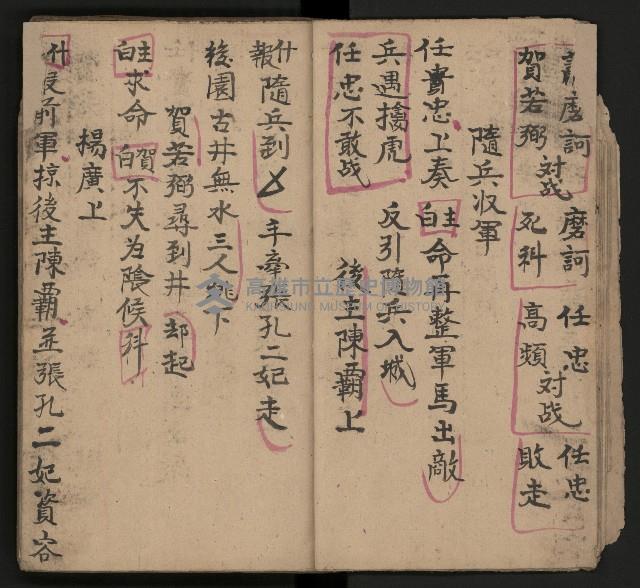 摩訶 摩訶 任忠 任忠
賀若弼 対战 死科 高頻 対战 敗走
隨兵収軍
任蛮忠上奏 白主 命再整軍馬出敵
兵遇擒虎 反引隨兵入城
任忠不敢战 後主陳霸上
什報隨兵到 手牽張孔二妃走
後園古井無水三人跳下
賀若弼尋到井 却起
白主求命 白賀 不失為隂候科
揚廣上
什 前軍掠後主陳霸並張孔二妃資容
高雄市立歷史博物館
KAOHSIUNG MUSEUM OF HISTORY